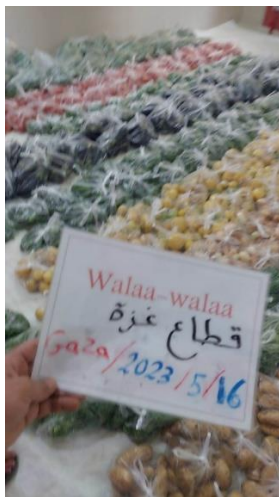 Walaa-walaa
قطاع غزة
Gaza/2023/5/16